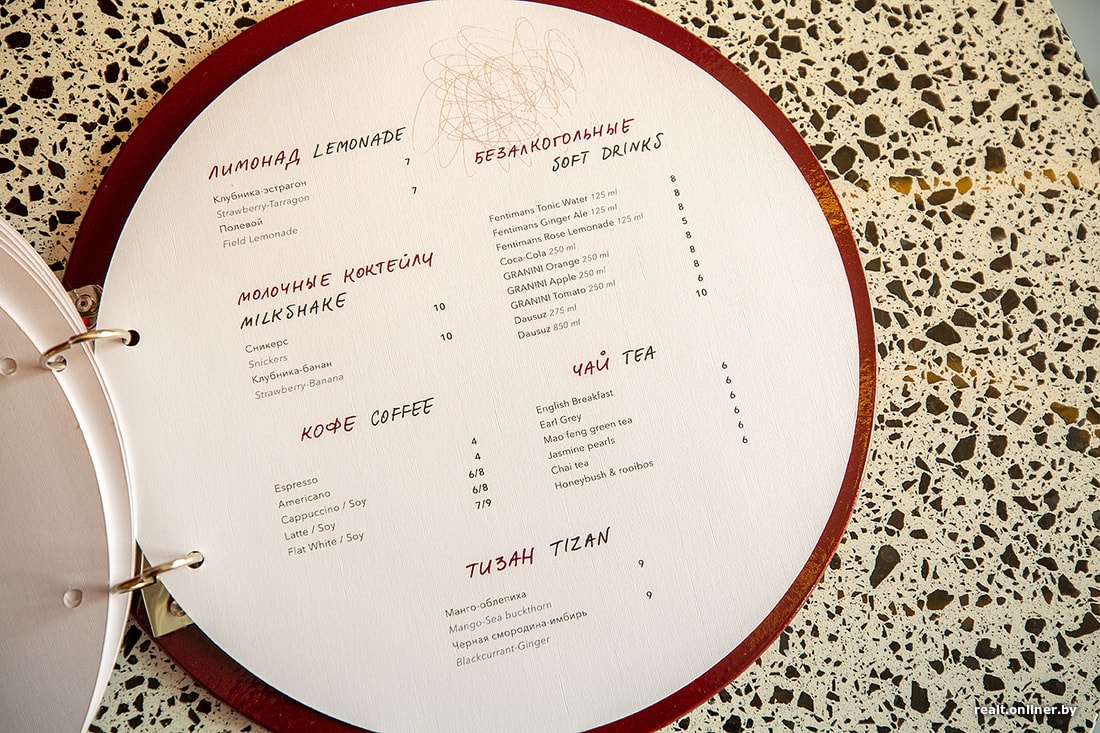 ЛИМОНАД LEMONADE
Клубника-эстрагон 7
Strawberry-Tarragon
Полевой 7
Field Lemonade
МОЛОЧНЫЕ КОКТЕЙЛИ
MILKSHAKE
Сникерс 10
Snickers
Клубника-банан 10
Strawberry-Banana
КОФЕ COFFEE
Espresso 4
Americano 4
Cappuccino / Soy 6/8
Latte / Soy 6/8
Flat White / Soy 7/9
БЕЗАЛКОГОЛЬНЫЕ
SOFT DRINKS
Fentimans Tonic Water 125 ml 8
Fentimans Ginger Ale 125 ml 8
Fentimans Rose Lemonade 125 ml 8
Coca-Cola 250 ml 5
GRANINI Orange 250 ml 8
GRANINI Apple 250 ml 8
GRANINI Tomato 250 ml 8
Dausuz 275 ml 6
Dausuz 850 ml 10
ЧАЙ TEA
English Breakfast 6
Earl Grey 6
Mao feng green tea 6
Jasmine pearls 6
Chai tea 6
Honeybush & rooibos 6
ТИЗАН TIZAN
Манго-облепиха 9
Mango-Sea buckthorn
Черная смородина-имбирь 9
Blackcurrant-Ginger
realt.onliner.by